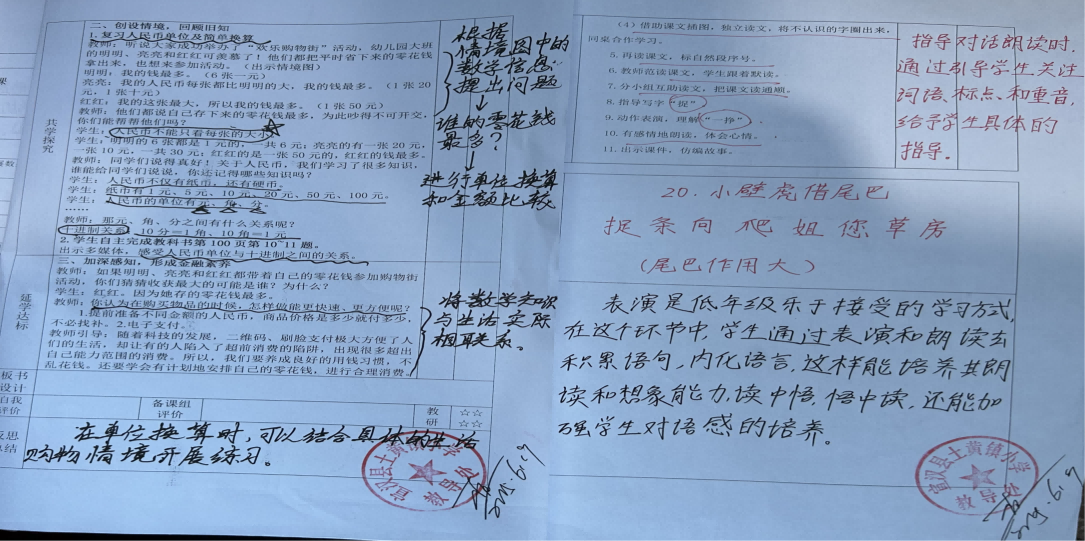 二、创设情境，回顾旧知
1.复习人民币单位及简单换算
教师：听说大家成功举办了“欢乐购物街”活动，幼儿园大班
的明明、亮亮和红红可羡慕了！他们都把平时省下来的零花钱
拿出来，也想来参加活动。（出示情境图）
明明：我的钱最多。（6张一元）
亮亮：我的人民币每张都比明明的大，我的钱最多。（1张20
元，1张十元）
红红：我的这张最大，所以我的钱最多。（1张50元）
教师：他们都说自己存下来的零花钱最多，为此吵得不可开交，
你们能帮帮他们吗？
学生：人民币不能只看每张的大小
学生：明明的6张都是1元的，一共6元；亮亮的有一张20元，
一张10元，一共30元；红红的是一张50元的，红红的钱最多。
教师：同学们说得真好！关于人民币，我们学习了很多知识，
谁能给同学们说说，你还记得哪些知识吗？
学生：人民币不仅有纸币，还有硬币。
学生：纸币有1元、5元、10元、20元、50元、100元。
学生：人民币的单位有元、角、分。
……
教师：那元、角、分之间有什么关系呢？
十进制关系，10分=1角、10角=1元
2.学生自主完成教科书第100页第10~11题。
出示多媒体，感受人民币单位与十进制之间的关系。
三、加深感知，形成金融素养
教师：如果明明、亮亮和红红都带着自己的零花钱参加购物街
活动，你们猜猜收获最大的可能是谁？为什么？
学生：红红。因为她存的零花钱最多。
教师：你认为在购买物品的时候，怎样做能更快速、更方便呢？
1.提前准备不同金额的人民币，商品价格是多少就付多少，
不必找补。2.电子支付。
教师引导：随着科技的发展，二维码、刷脸支付极大方便了人
们的生活，却让有的人陷入了超前消费的陷阱，出现很多超出
自己能力范围的消费。所以，我们要养成良好的用钱习惯，不
乱花钱。还要学会有计划地安排自己的零花钱，进行合理消费。
共学探究
延学达标
根据
情境图中的
数学信息
提出问题
谁的零花钱
最多？
进行单位换算
和金额比较
将数学知识
与生活实际
相联系。
板书
设计
自我
评价
备课组
评价
教
研
☆☆
☆☆
在单位换算时，可以结合具体的生活
购物情境开展练习。
宣汉县土黄镇小学
教导处
2025.6.19
（4）借助课文插图，独立读文，将不认识的字圈出来，
同桌合作学习。
5.再读课文，标自然段序号。
6.教师范读课文，学生跟着默读。
7.分小组互助读文，把课文读通顺。
8.指导写字“捉”
9.动作表演，理解“一挣”。
10.有感情地朗读，体会心情。
11.出示课件，仿编故事。
指导对话朗读时，
通过引导学生关注
词语、标点、和重音，
给予学生具体的
指导。
20.小壁虎借尾巴
捉条向爬姐您草房
（尾巴作用大）
表演是低年级乐于接受的学习方式，
在这个环节中，学生通过表演和朗读去
积累语句，内化语言，这样能培养其朗
读和想象能力，读中悟，悟中读，还能加
强学生对语感的培养。
宣汉县土黄镇小学
教导处